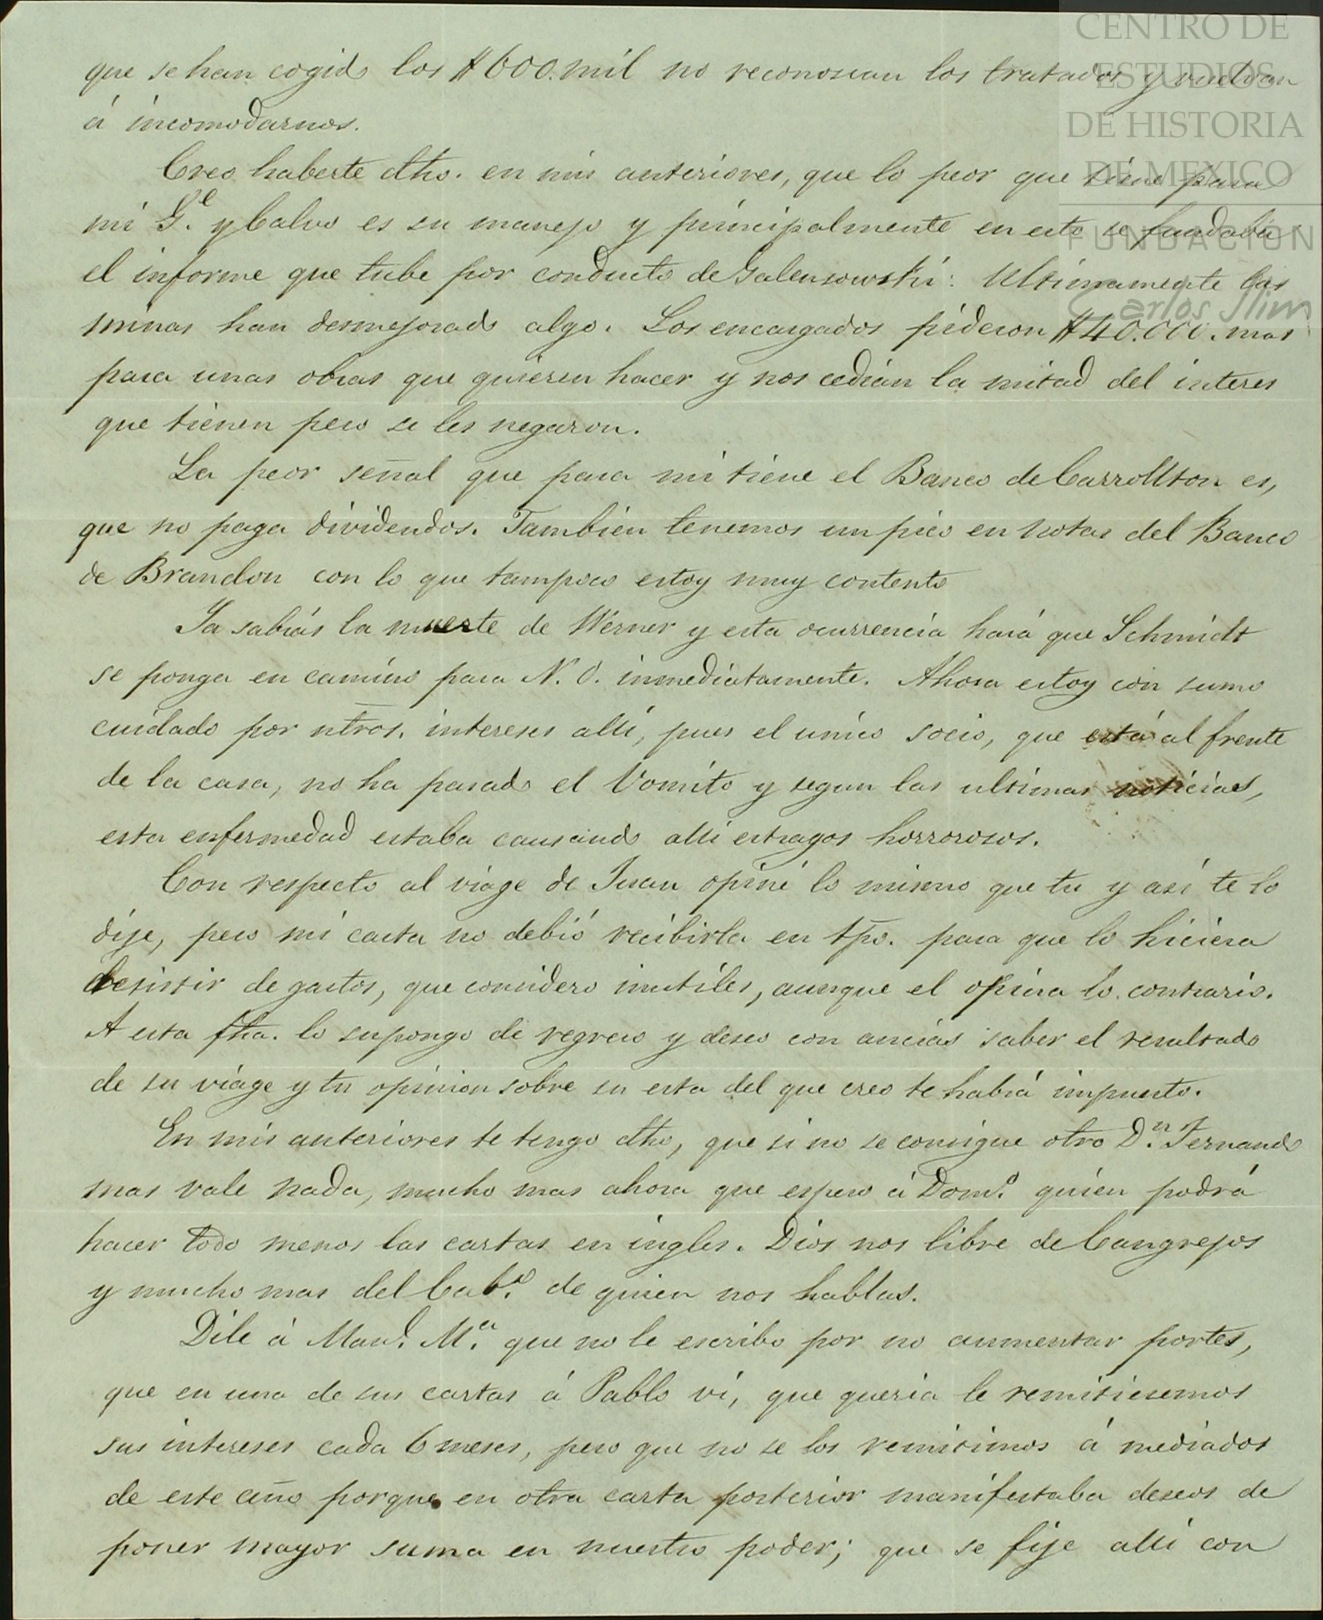 CENTRO DE
ESTUDIOS
DE HISTORIA
DE MEXICO
FUNDACION
Carlos Slim
que se han cogido los $600.mil no reconoscan los tratados y vuelvan
á incomodarnos.
Creo haberte dho. en mis anteriores, que lo peor que tiene para
mi Ge. y Calvo es su manejo y principalmente en esto se fundaba
el informe que tube por conducto de Galensowski: Ultimamente las
minas han desmejorado algo. Los encargados pidieron $40.000. mas
para unas obras que quieren hacer y nos cedian la mitad del interes
que tienen pero se les negaron.
La peor señal que para mi tiene el Banco de Carrollton es,
que no paga dividendos. Tambien tenemos un pico en notas del Banco
de Brandon con lo que tampoco estoy muy contento
Ya sabrás la muerte de Werner y esta ocurrencia hará que Schmidt
se ponga en camino para N. O. inmediatamente. Ahora estoy con sumo
cuidado por ntros. intereses allí, pues el unico socio, que está al frente
de la casa, no ha pasado el Vomito y segun las ultimas noticias,
esta enfermedad estaba causando alli estragos horrorosos.
Con respecto al viage de Juan opiné lo mismo que tu y así te lo
dije, pero mi carta no debió recibirla en tpo. para que lo hiciera
desistir de gastos, que considero inutiles, aunque el opina lo contrario.
A esta fha. lo supongo de regreso y deseo con ancias saber el resultado
de su viage y tu opinion sobre su esta del que creo te habrá impuesto.
En mis anteriores te tengo dho, que si no se consigue otro Dn. Fernando
mas vale nada, mucho mas ahora que espero á Domo. quien podrá
hacer todo menos las cartas en ingles. Dios nos libre de Cangrejos
y mucho mas del Cabo. de quien nos hablas.
Dile á Manl. Ma. que no le escribo por no aumentar portes,
que en una de sus cartas á Pablo ví, que queria le remitiesemos
sus intereses cada 6 meses, pero que no se los remitimos á mediados
de este año porque en otra carta posterior manifestaba deseos de
poner mayor suma en nuestro poder; que se fije alli con